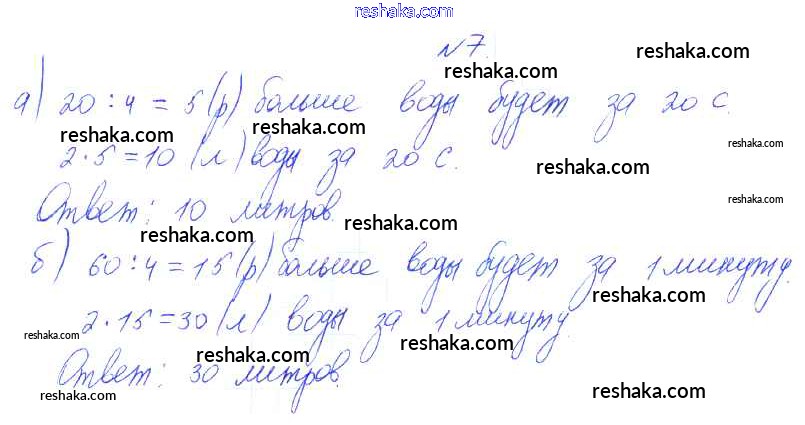 reshaka.com
№7.
reshaka.com
reshaka.com
а) 20 : 4 = 5 (р) больше воды будет за 20 с.
reshaka.com
reshaka.com
reshaka.com
2 · 5 = 10 (л) воды за 20 с.
reshaka.com
reshaka.com
Ответ: 10 литров.
reshaka.com
reshaka.com
б) 60 : 4 = 15 (р) больше воды будет за 1 минуту.
reshaka.com
2 · 15 = 30 (л) воды за 1 минуту.
reshaka.com
reshaka.com
reshaka.com
Ответ: 30 литров.
reshaka.com
reshaka.com